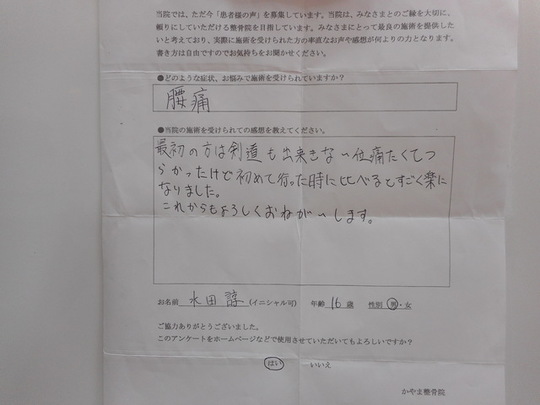 当院では、ただ今「患者様の声」を募集しています。当院は、みなさまとのご縁を大切に、
頼りにしていただける整骨院を目指しています。みなさまにとって最良の施術を提供した
いと考えており、実際に施術を受けられた方の率直なお声や感想が何よりの力となります。
書き方は自由ですのでお気持ちをお聞かせください。
●どのような症状、お悩みで施術を受けられていますか？
腰痛
●当院の施術を受けられての感想を教えてください。
最初の方は剣道も出来きない位痛たくてつ
らかったけど初めて行った時に比べるとすごく楽に
なりました。
これからもよろしくおねがいします。
お名前 水田 諄 (イニシャル可) 年齢 16 歳 性別 男・女
ご協力ありがとうございました。
このアンケートをホームページなどで使用させていただいてもよろしいですか？
はい ・ いいえ
かやま整骨院